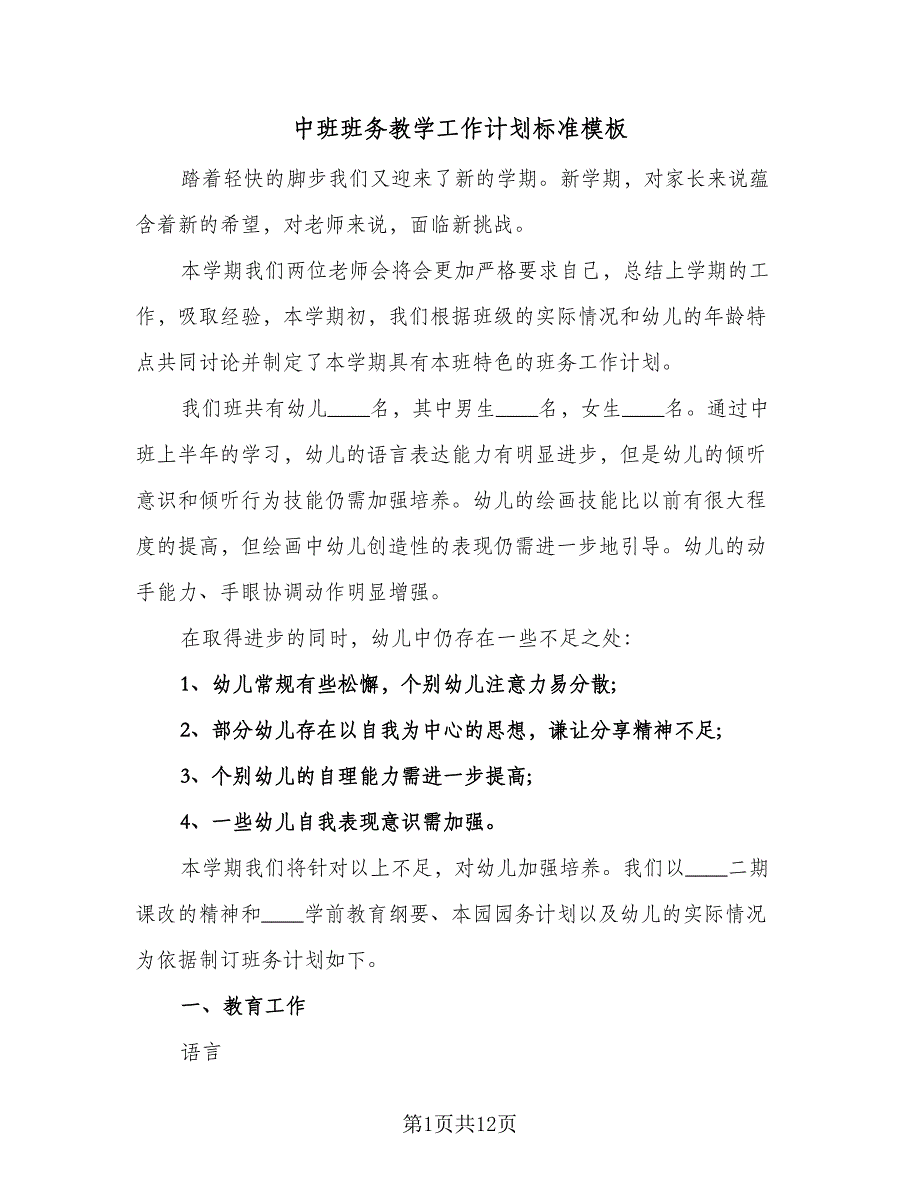 中班班务教学工作计划标准模板
踏着轻快的脚步我们又迎来了新的学期。新学期，对家长来说蕴
含着新的希望，对老师来说，面临新挑战。
本学期我们两位老师会将会更加严格要求自己，总结上学期的工
作，吸取经验，本学期初，我们根据班级的实际情况和幼儿的年龄特
点共同讨论并制定了本学期具有本班特色的班务工作计划。
我们班共有幼儿____名，其中男生____名，女生____名。通过中
班上半年的学习，幼儿的语言表达能力有明显进步，但是幼儿的倾听
意识和倾听行为技能仍需加强培养。幼儿的绘画技能比以前有很大程
度的提高，但绘画中幼儿创造性的表现仍需进一步地引导。幼儿的动
手能力、手眼协调动作明显增强。
在取得进步的同时，幼儿中仍存在一些不足之处：
1、幼儿常规有些松懈，个别幼儿注意力易分散;
2、部分幼儿存在以自我为中心的思想，谦让分享精神不足;
3、个别幼儿的自理能力需进一步提高;
4、一些幼儿自我表现意识需加强。
本学期我们将针对以上不足，对幼儿加强培养。我们以____二期
课改的精神和____学前教育纲要、本园园务计划以及幼儿的实际情况
为依据制订班务计划如下。
一、教育工作
语言
第1页共12页